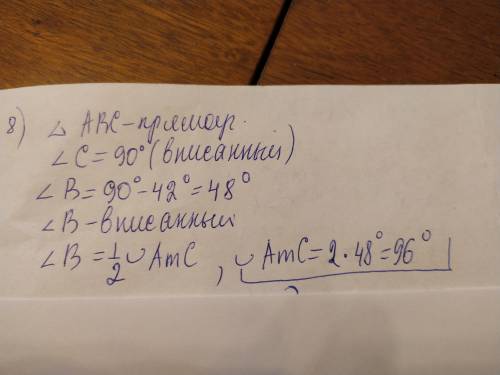 8) △ ABC-прямоуг.
∠C = 90° (вписанный)
∠B = 90° - 42° = 48°
∠B - вписанный
∠B = 1/2 ∪ AmC , ∪ AmC = 2 · 48° = 96°